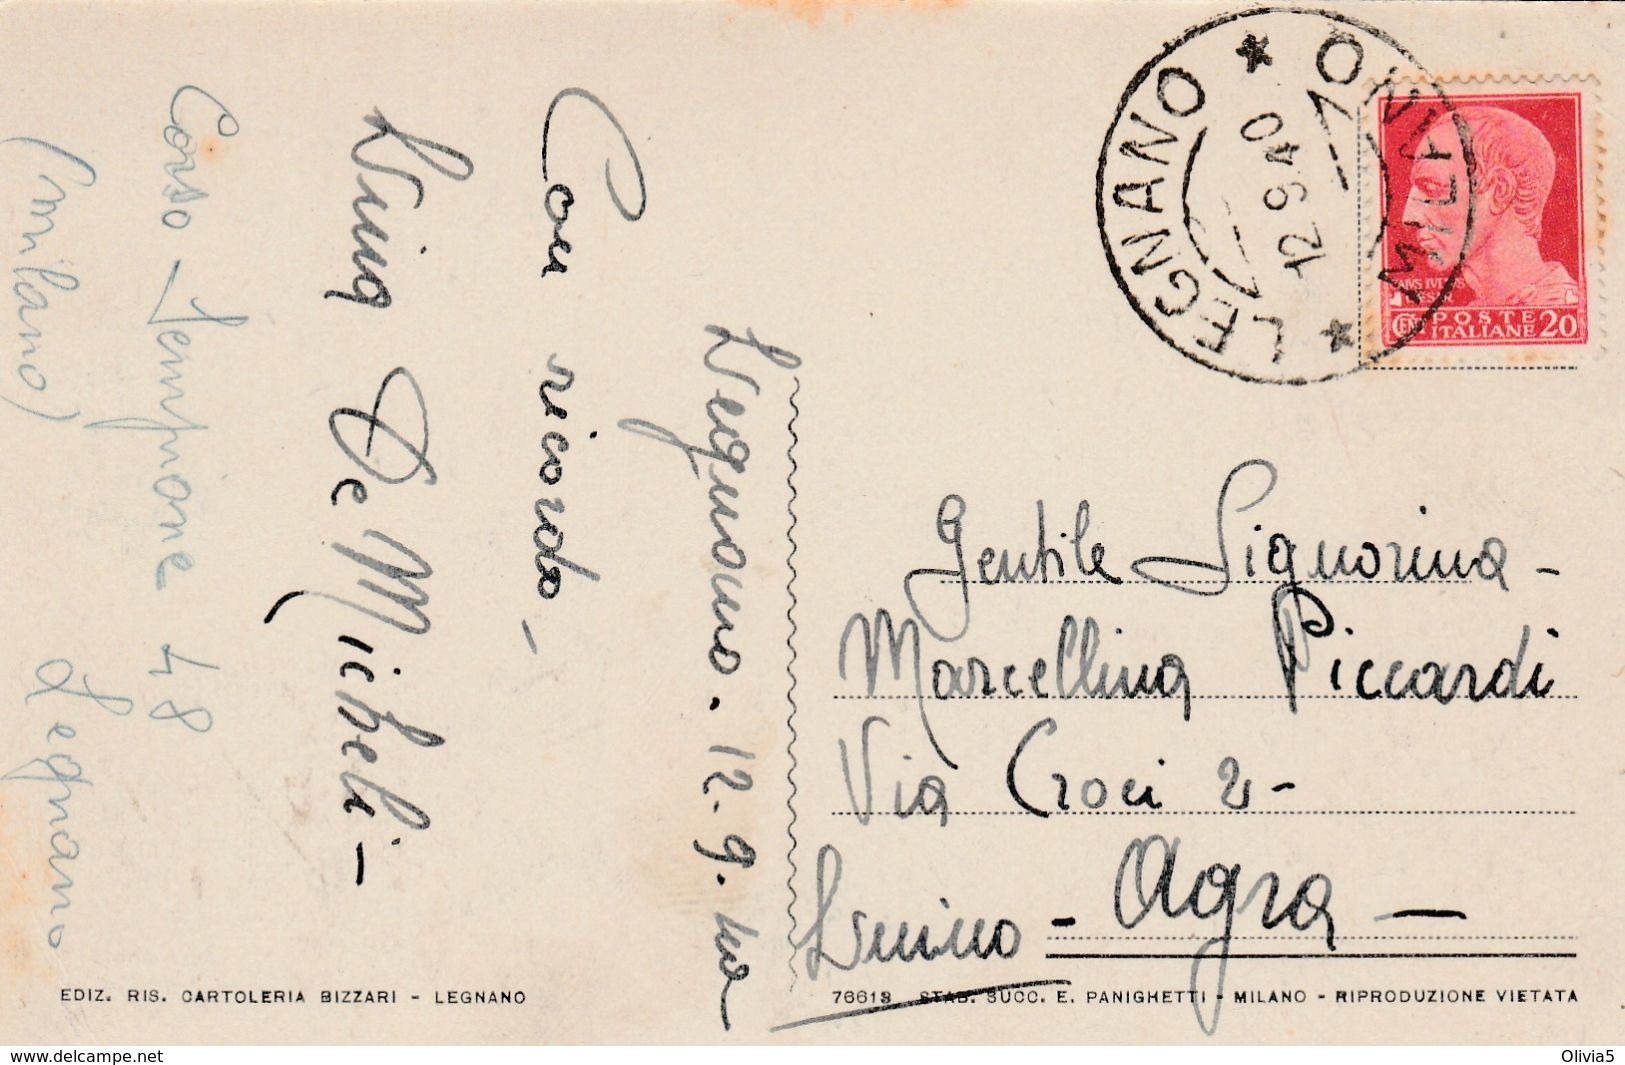 Corso Sempione 48
(milano) Legnano
Con ricordo -
De Micheli -
Legnano. 12. 9. 40
LEGNANO * MILANO *
12 9 40
POSTE
ITALIANE
CEN 20
Gentile Signorina -
Marcellina Piccardi
Via Croci 2 -
Luino - Agra -
EDIZ. RIS. CARTOLERIA BIZZARI - LEGNANO
76613 STAB. SUCC. E. PANIGHETTI - MILANO - RIPRODUZIONE VIETATA
www.delcampe.net
Olivia5